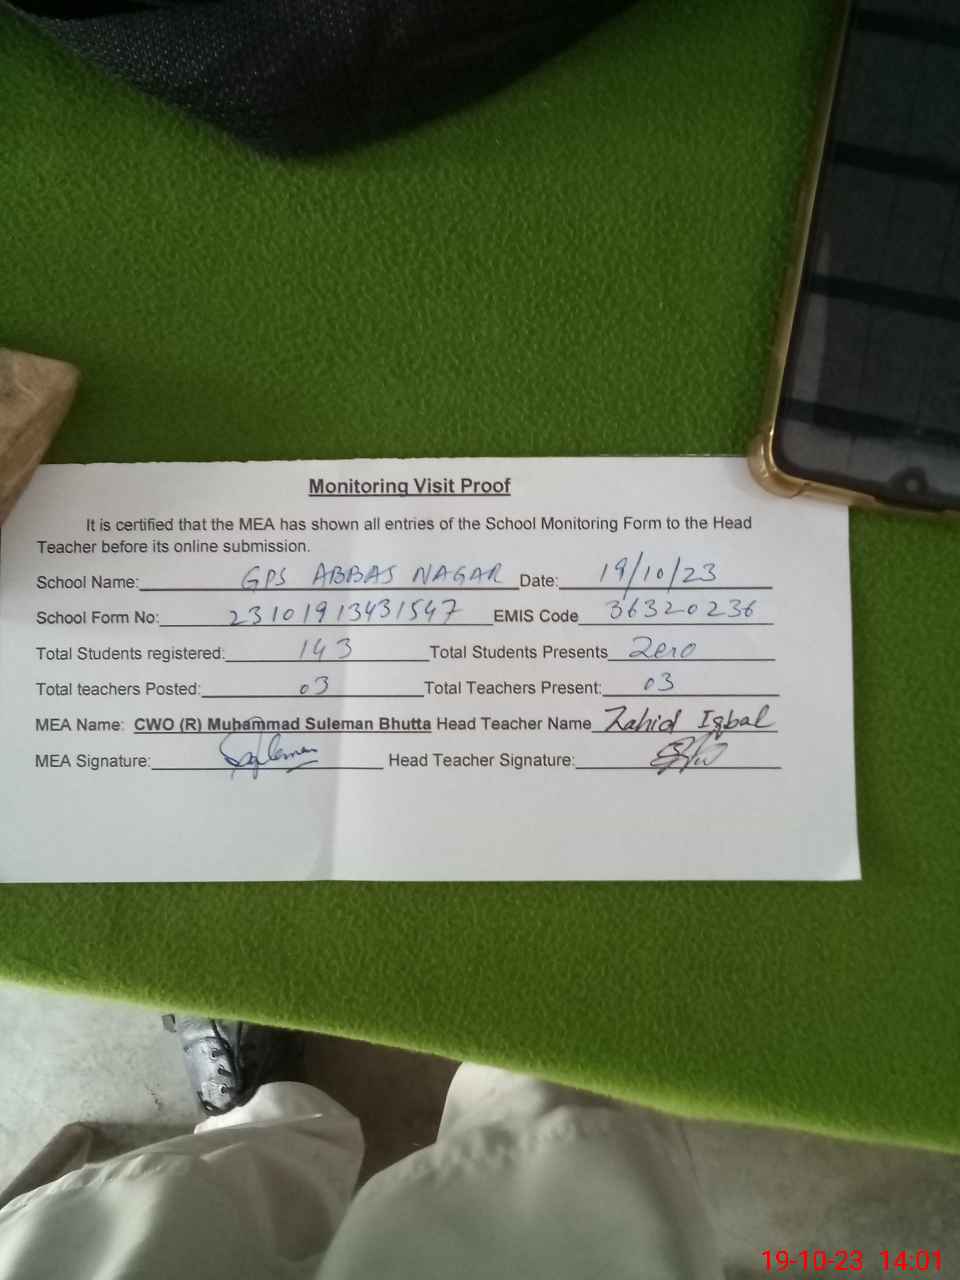 Monitoring Visit Proof
It is certified that the MEA has shown all entries of the School Monitoring Form to the Head
Teacher before its online submission.
School Name: GPS ABBAS NAGAR Date: 19/10/23
School Form No: 23101913431547 EMIS Code 36320236
Total Students registered: 143 Total Students Presents Zero
Total teachers Posted: 03 Total Teachers Present: 03
MEA Name: CWO (R) Muhammad Suleman Bhutta Head Teacher Name Zahid Iqbal
MEA Signature: Suleman Head Teacher Signature:
19-10-23 14:01